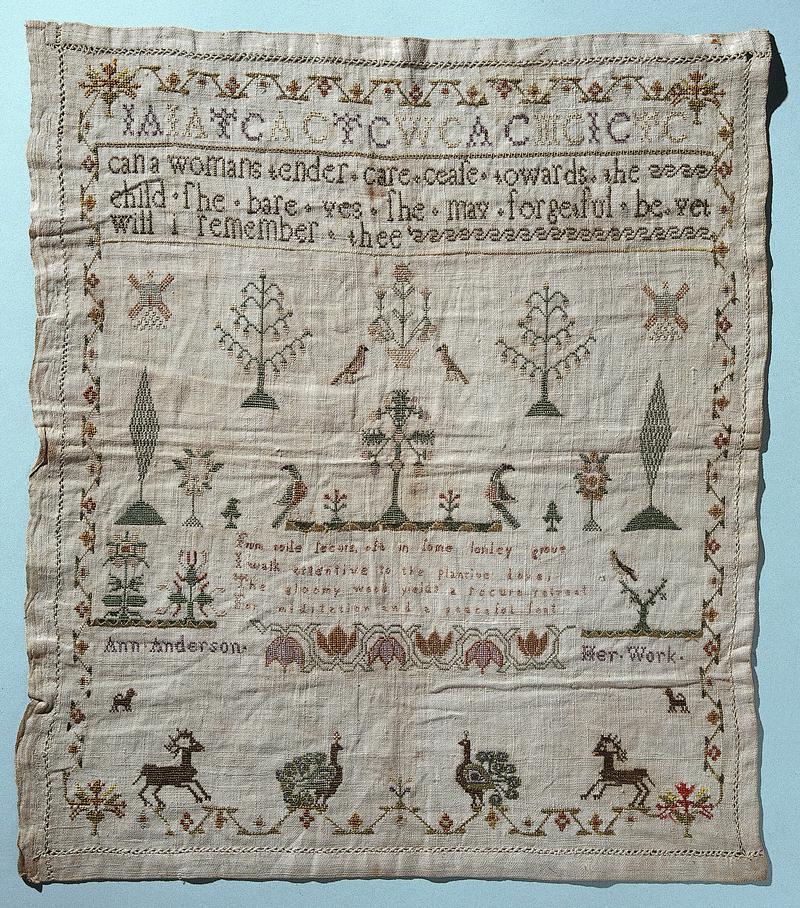 IA IA TC AC TC WC AC WC IC WC
can a womans tender · care · ceaſe · towards · the
child · ſhe · bare · yes · ſhe · may · forgetful · be · yet
will i remember · thee
From noiſe ſecure, oft in ſome lonley grove
I walk attentive to the plantive dove,
The gloomy wood yields a ſecure retreat
For meditation and a peaceful ſeat
Ann Anderson · Her · Work ·